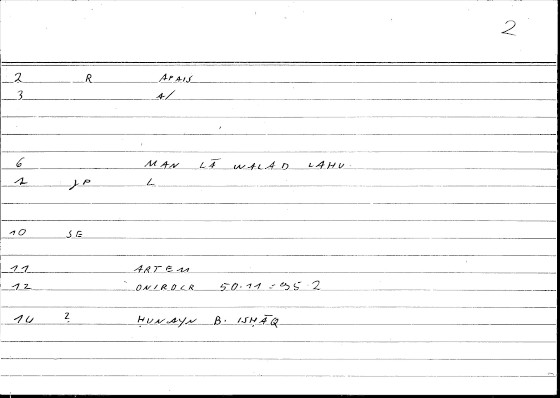 2
2 R APAIS
3 A/
6 MAN LĀ WALAD LAHU.
1 JP L
10 SE
11 ARTEM
12 ONIROCR 50.11 = 95 2
14 ? ḤUNAYN B. ISḤĀQ